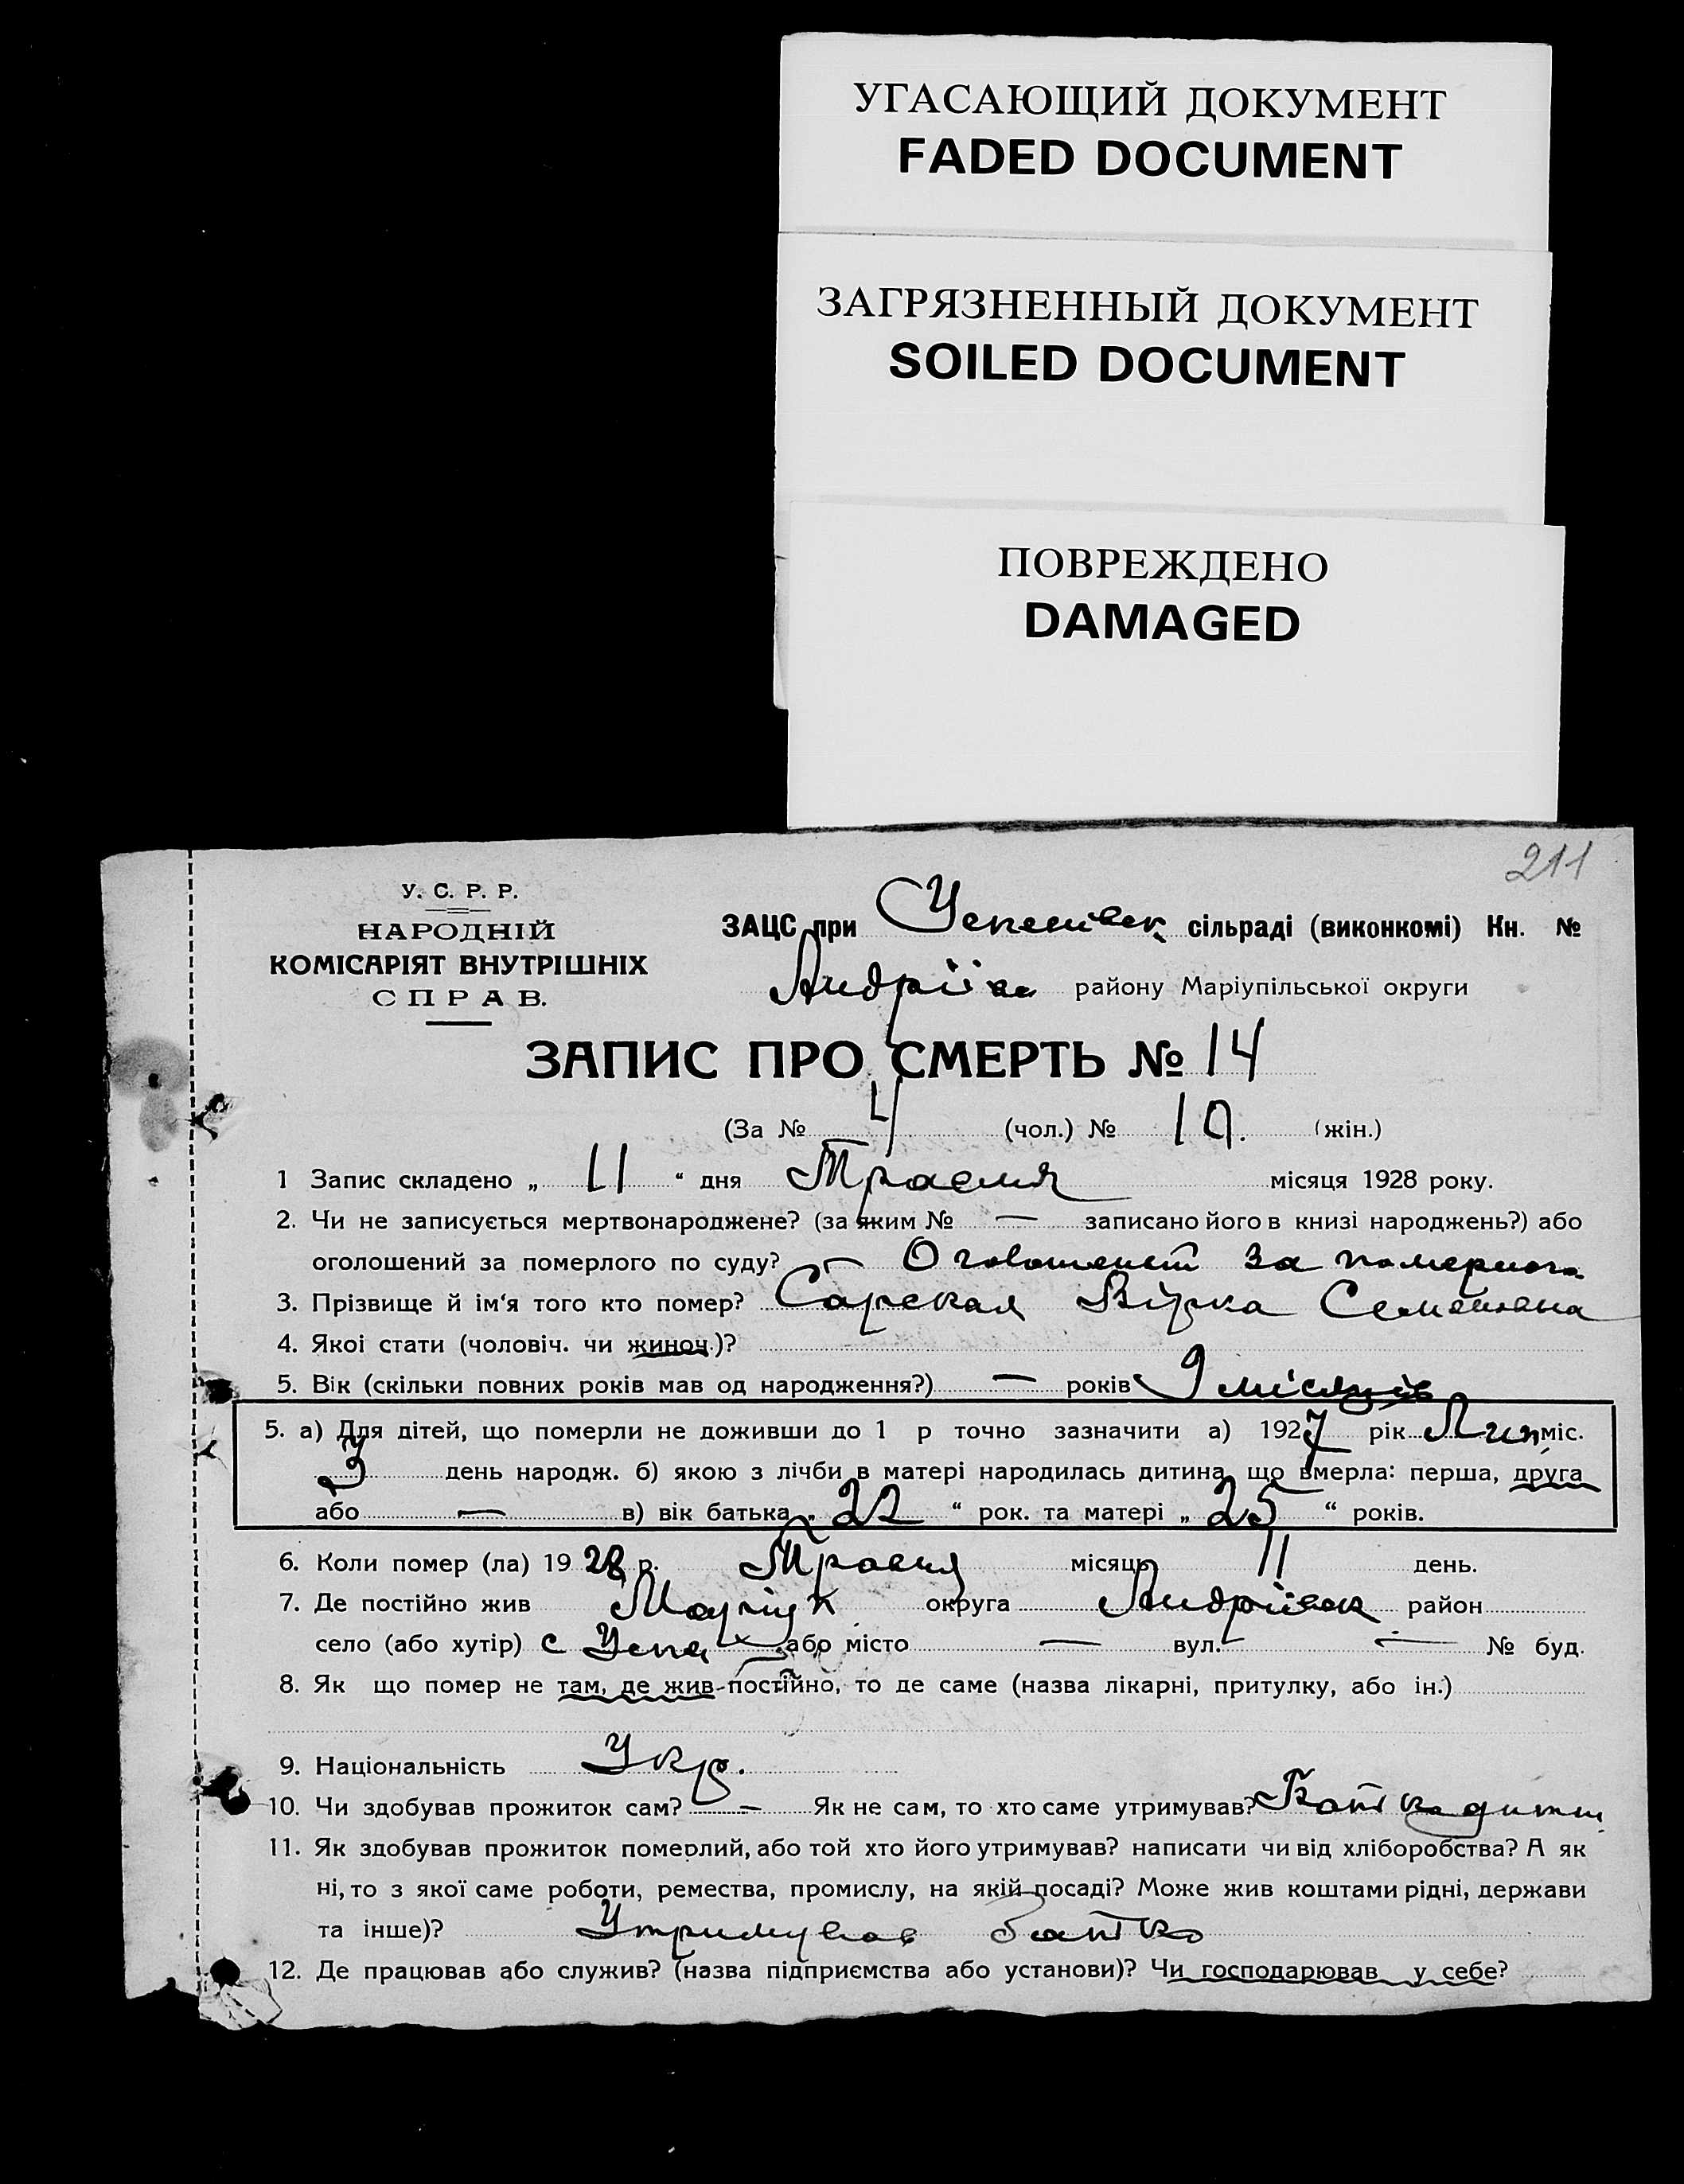 УГАСАЮЩИЙ ДОКУМЕНТ
FADED DOCUMENT
ЗАГРЯЗНЕННЫЙ ДОКУМЕНТ
SOILED DOCUMENT
ПОВРЕЖДЕНО
DAMAGED
211
У. С. Р. Р.
НАРОДНІЙ
КОМІСАРІЯТ ВНУТРІШНІХ
СПРАВ.
ЗАЦС при сільраді (виконкомі) Кн. №
району Маріупільської округи
ЗАПИС ПРО СМЕРТЬ № 14
(За № 4 (чол.) № 10. (жін.)
1 Запис складено „ 11 “ дня Травня місяця 1928 року.
2. Чи не записується мертвонароджене? (за яким № — записано його в книзі народжень?) або
оголошений за померлого по суду? — за померлого
3. Прізвище й ім‘я того кто помер? Сарская Вірка Семеновна
4. Якої стати (чоловіч. чи жиноч.)?
5. Вік (скільки повних років мав од народження?) — років 9 місяців
5. а) Для дітей, що померли не доживши до 1 р точно зазначити а) 1927 рік Лип міс.
3 день народж. б) якою з лічби в матері народилась дитина, що вмерла: перша, друга
або — в) вік батька „ 22 “ рок. та матері „ 25 “ років.
6. Коли помер (ла) 19 28 р. Травня місяць 11 день.
7. Де постійно жив Маріуп округа Андріївск район
село (або хутір) с Успе або місто — вул. — № буд.
8. Як що помер не там, де жив постійно, то де саме (назва лікарні, притулку, або ін.)
9. Національність Укр.
10. Чи здобував прожиток сам? — Як не сам, то хто саме утримував?
11. Як здобував прожиток померлий, або той хто його утримував? написати чи від хліборобства? А як
ні, то з якої саме роботи, ремества, промислу, на якій посаді? Може жив коштами рідні, держави
та інше)? Утримував батько
12. Де працював або служив? (назва підприємства або установи)? Чи господарював у себе?